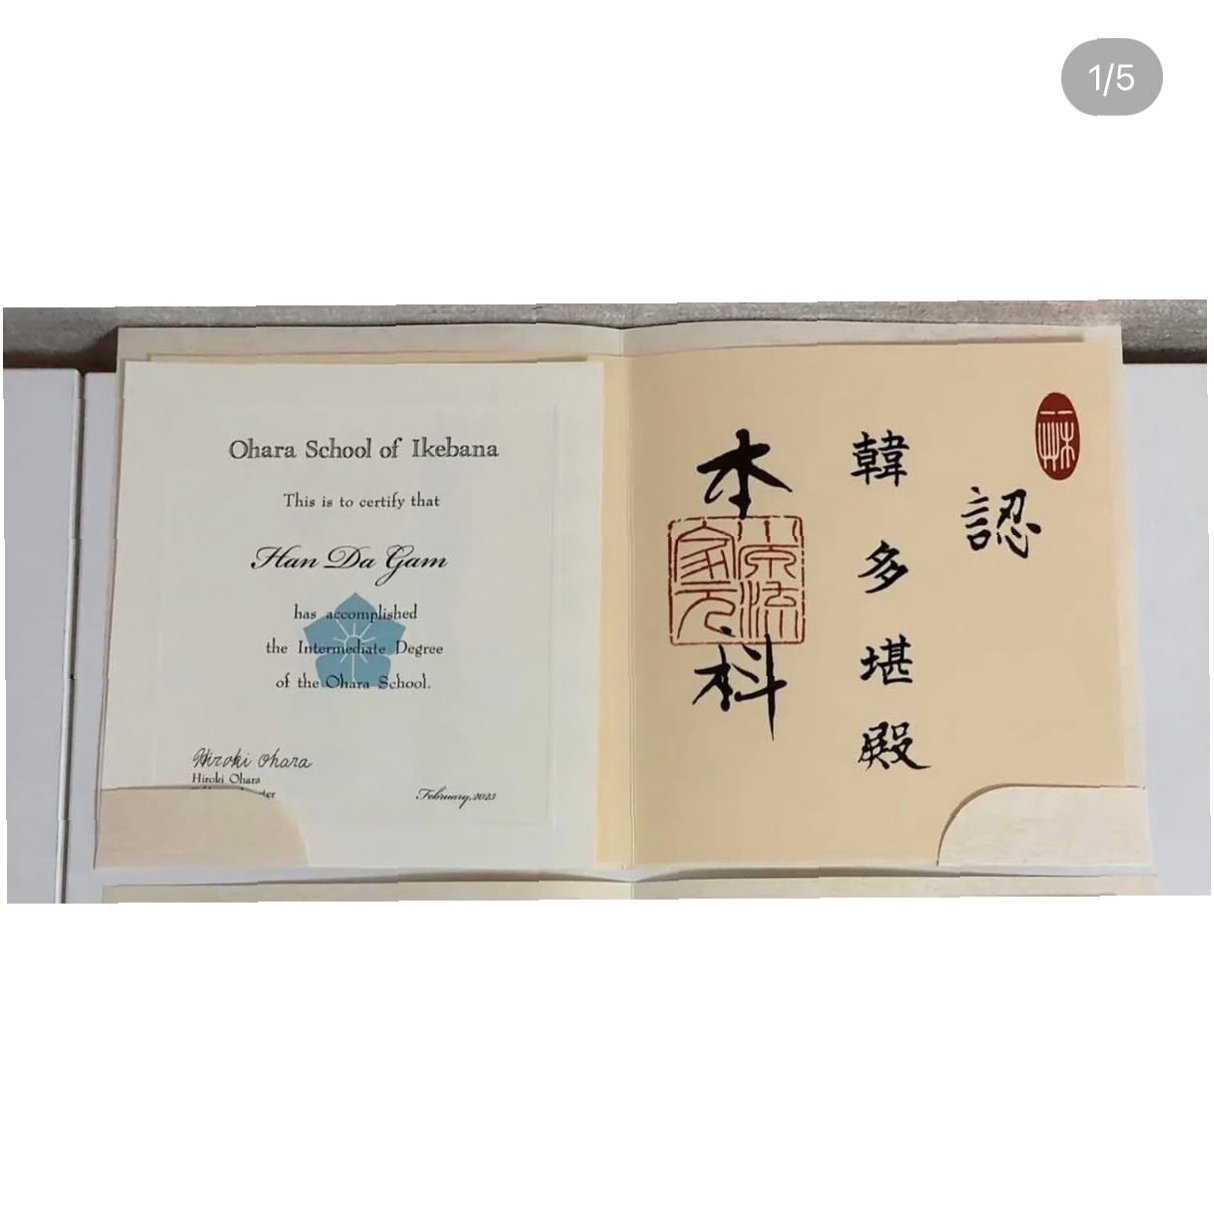 1/5
Ohara School of Ikebana
This is to certify that
Han Da Gam
has accomplished
the Intermediate Degree
of the Ohara School.
Hiroki Ohara
Hiroki Ohara
February, 2023
認
韓多堪殿
本科
小原流
家元